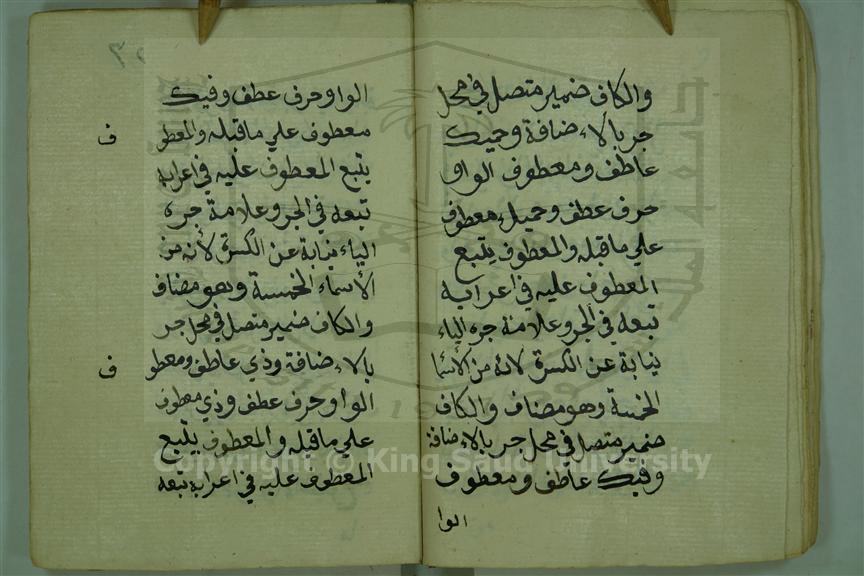 والكاف ضمير متصل في محل
جر بالاءضافة وحميك
عاطف ومعطوف الواو
حرف عطف وحميك معطوف
علي ماقبله والمعطوف يتبع
المعطوف عليه في اعرابه
تبعه في الجر وعلامة جره الياء
نيابة عن الكسرة لانه من الأسما
الخمسة وهو مضاف والكاف
ضمير متصل في محل جر بالاءضافة
وفيك عاطف ومعطوف
الوا
٣٥
الواو حرف عطف وفيك
معطوف علي ماقبله والمعطو
ف
يتبع المعطوف عليه في اعرابه
تبعه في الجر وعلامة جره
الياء نيابة عن الكسرة لأنه من
الأسماء الخمسة وهو مضاف
والكاف ضمير متصل في محل جر
بالاءضافة وذي عاطف ومعطو
ف
الواو حرف عطف وذي معطوف
علي ماقبله والمعطوف يتبع
المعطوف عليه في اعرابه تبعه
Copyright © King Saud University